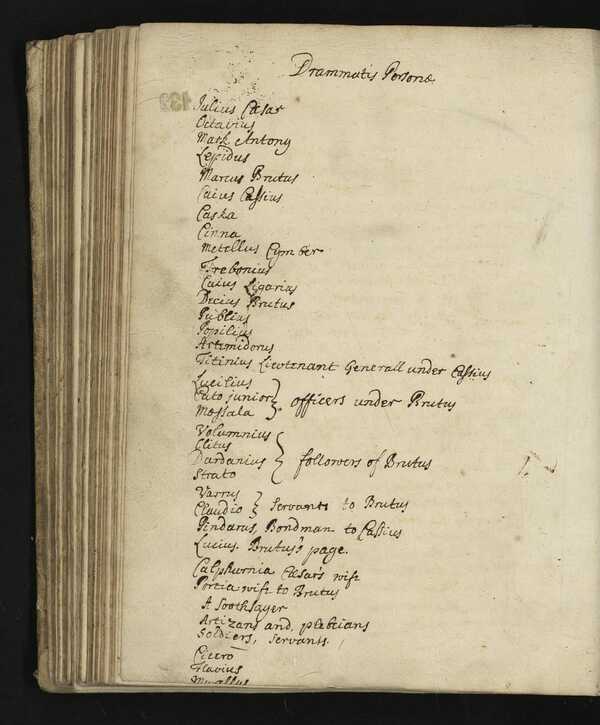 Drammatis Personæ
132
Julius Cæsar
Octavius
Mark Antony
Lepidus
Marcus Brutus
Caius Cassius
Caska
Cinna
Metellus Cymber
Trebonius
Caius Ligarius
Decius Brutus
Publius
Popilius
Artimidorus
Titinius Lieutenant Generall under Cassius
Lucilius
Cato junior
Messala
officers under Brutus
Volumnius
Clitus
Dardanius
Strato
followers of Brutus
Varrus
Claudio
Servants to Brutus
Pindarus, Bondman to Cassius
Lucius. Brutus's page.
Calphurnia Cæsar's wife
Portia wife to Brutus
A Soothsayer
Artizans and plebians
Soldiers, servants.
Cicero
Flavius